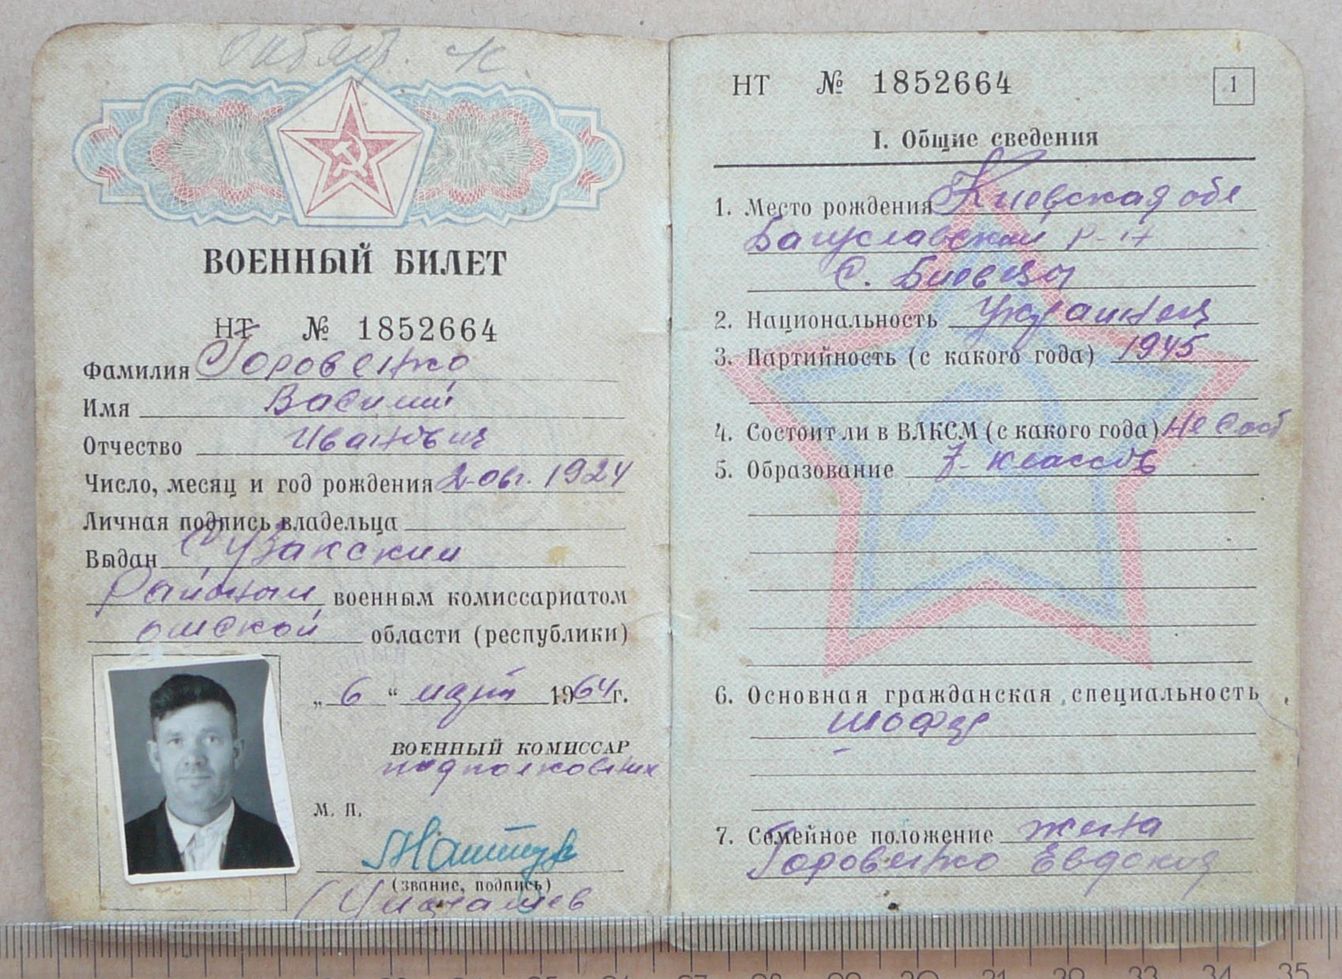 ВОЕННЫЙ БИЛЕТ
НТ № 1852664
Фамилия Горовенко
Имя Василий
Отчество Иванович
Число, месяц и год рождения 2 авг. 1924
Личная подпись владельца
Выдан Сузакский
Районный военным комиссариатом
омской области (республики)
„ 6 “ 1964 г.
ВОЕННЫЙ КОМИССАР
подполковник
М. П.
(звание, подпись)
НТ № 1852664
1
I. Общие сведения
1. Место рождения Киевская обл
Багуславский р-н
с. Биевцы
2. Национальность Украинец
3. Партийность (с какого года) 1945
4. Состоит ли в ВЛКСМ (с какого года) не сост
5. Образование 7 классов
6. Основная гражданская специальность
шофер
7. Семейное положение жена
Горовенко Евдокия
27 28 29 30 31 32 33 34 35